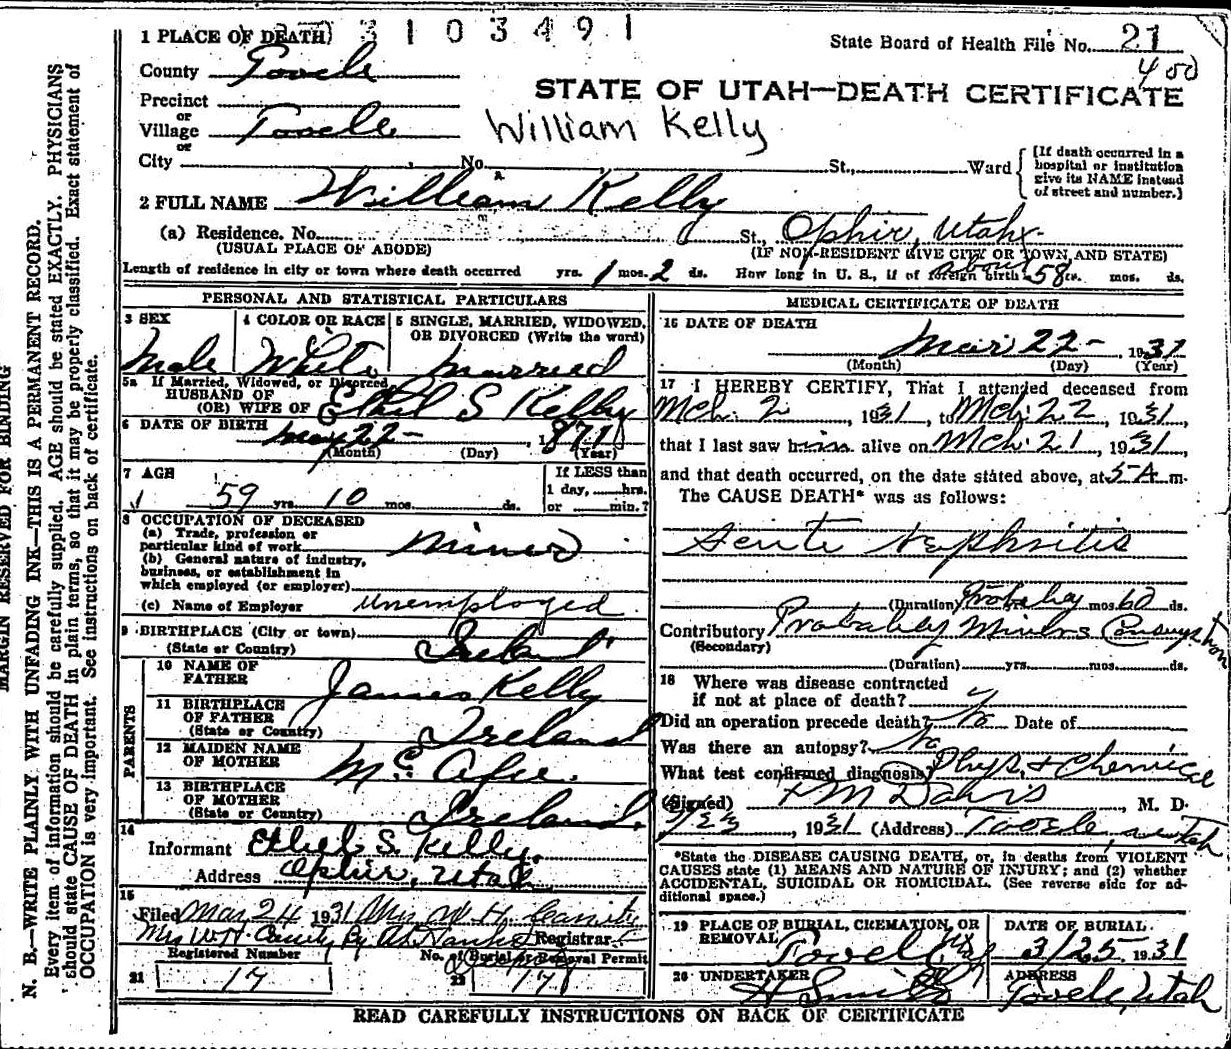 1 PLACE OF DEATH 3 1 0 3 4 9 1
State Board of Health File No. 21
400
County Tooele
STATE OF UTAH—DEATH CERTIFICATE
Precinct
or
Village Tooele
William Kelly
or
City No. St., Ward
[If death occurred in a hospital or institution give its NAME instead of street and number.]
2 FULL NAME William Kelly
(a) Residence. No. St., Ophir, Utah.
(USUAL PLACE OF ABODE) (IF NON-RESIDENT GIVE CITY OR TOWN, AND STATE)
Length of residence in city or town where death occurred yrs. 1 mos. 2 ds. How long in U. S., if of foreign birth about 58 yrs. mos. ds.
PERSONAL AND STATISTICAL PARTICULARS
3 SEX Male
4 COLOR OR RACE White
5 SINGLE, MARRIED, WIDOWED, OR DIVORCED (Write the word) married
5a If Married, Widowed, or Divorced
HUSBAND OF
(OR) WIFE OF Ethel S Kelly
6 DATE OF BIRTH May 22 - , 1871
(Month) (Day) (Year)
7 AGE 59 yrs. 10 mos. ds.
If LESS than
1 day, hrs.
or min.?
8 OCCUPATION OF DECEASED
(a) Trade, profession or
particular kind of work Miner
(b) General nature of industry,
business, or establishment in
which employed (or employer)
(c) Name of Employer unemployed
9 BIRTHPLACE (City or town)
(State or Country) Ireland
PARENTS
10 NAME OF
FATHER James Kelly
11 BIRTHPLACE
OF FATHER
(State or Country) Ireland
12 MAIDEN NAME
OF MOTHER Mc Afee.
13 BIRTHPLACE
OF MOTHER
(State or Country) Ireland.
14
Informant Ethel S. Kelly.
Address Ophir, Utah
15
Filed Mar 24 1931 Mrs W. H.
Mrs W H By Registrar
Registered Number
No. of Burial or Removal Permit
21 17
22 171
MEDICAL CERTIFICATE OF DEATH
16 DATE OF DEATH
Mar 22 - 1931
(Month) (Day) (Year)
17 I HEREBY CERTIFY, That I attended deceased from
Mch. 2, 1931, to Mch. 22, 1931,
that I last saw him alive on Mch. 21, 1931,
and that death occurred, on the date stated above, at 5 A m.
The CAUSE DEATH* was as follows:
Acute Nephritis
(Duration) Probabley mos. 60 ds.
Contributory Probabley Miners Consumption
(Secondary)
(Duration) yrs. mos. ds.
18 Where was disease contracted
if not at place of death? ?
Did an operation precede death? No Date of
Was there an autopsy? No
What test confirmed diagnosis Phys. + Chemical
(Signed) M Davis, M. D.
3/23, 1931 (Address) Tooele, Utah
*State the DISEASE CAUSING DEATH, or, in deaths from VIOLENT
CAUSES state (1) MEANS AND NATURE OF INJURY; and (2) whether
ACCIDENTAL, SUICIDAL OR HOMICIDAL. (See reverse side for ad-
ditional space.)
19 PLACE OF BURIAL, CREMATION, OR
REMOVAL Tooele
DATE OF BURIAL
3/25 1931
20 UNDERTAKER
ADDRESS
Tooele, Utah
READ CAREFULLY INSTRUCTIONS ON BACK OF CERTIFICATE
MARGIN RESERVED FOR BINDING
N. B.—WRITE PLAINLY WITH UNFADING INK—THIS IS A PERMANENT RECORD.
Every item of information should be carefully supplied. AGE should be stated EXACTLY. PHYSICIANS
should state CAUSE OF DEATH in plain terms, so that it may be properly classified. Exact statement of
OCCUPATION is very important. See instructions on back of certificate.